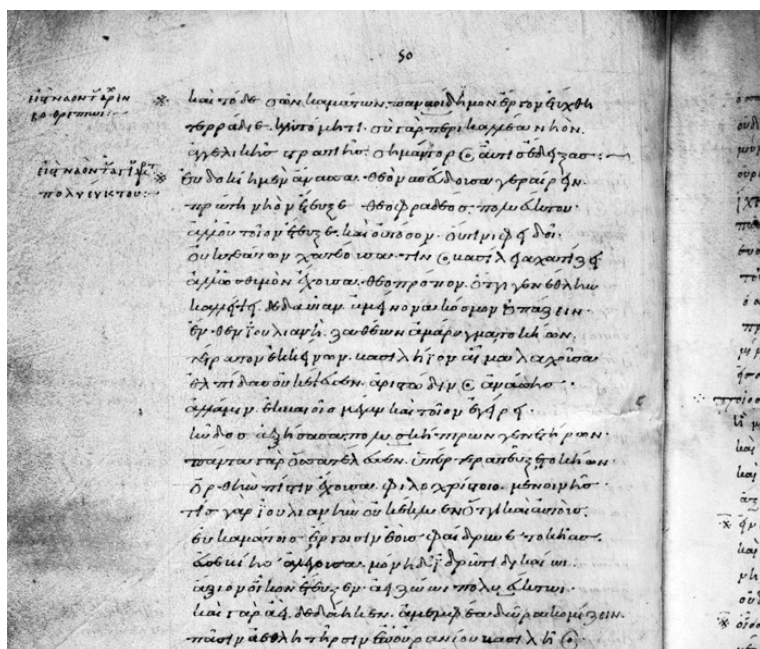 50
εἰς ναὸν τοῦ ἀρχ ἐν
βοθρέπτωι:
καὶ τόδε σῶν καμάτων. παναοίδιμον ἔργον ἐτύχθη
γεννάδιε. κλυτόμητι. σὺ γὰρ περικαλλέα νηὸν.
ἀγγελικῆς στρατιῆς. σημάντορος αὖτις ἔδειξας:
εἰς ναὸν τοῦ ἁγίου μάρτ
πολυεύκτου:
εὐδοκίη μὲν ἄνασσα. θεὸν σπεύδουσα γεραίρειν.
πρώτη νηὸν ἔτευξε θεοφραδέος. πολυεύκτου.
ἀλλ' οὐ τοῖον ἔτευξε. καὶ οὐ τόσον. οὔτινι φειδοῖ.
οὐ κτεάτων χατέουσα. τίνος βασίλεια χατίζει
ἀλλ' ὡς θυμὸν ἔχουσα. θεοπρόπον. ὅττι γενέθλην
καλλείψει. δεδαυῖαν. ἀμείνονα κόσμον ὀπάζειν.
ἔνθεν ἰουλιανή. ζαθέων ἀμάρυγμα τοκήων.
τέτρατον ἐκ κείνων. βασιλήϊον αἷμα λαχοῦσα
ἐλπίδας οὐκ ἔψευσεν. ἀριστώδινος ἀνάσσης.
ἀλλά μιν ἐκ βαιοῖο μέγαν καὶ τοῖον ἐγείρει
κῦδος ἀεξήσασα. πολυσκήπτρων γενετήρων.
πάντα γὰρ ὅσσα τέλεσσεν. ὑπέρτερα τεῦξε τοκήων.
ὀρθὴν πίστιν ἔχουσα. φιλοχρίστοιο. μενοινῆς
τίς γὰρ ἰουλιανὴν οὐκ ἔκλυεν ὅττι καὶ αὐτοὺς.
εὐκαμάτοις ἔργοισιν ἑοὺς φαίδρυνε τοκῆας.
εὐσεβίης ἀλέγουσα. μόνη δ' ἱδρῶτι δικαίωι.
ἄξιον οἶκον ἔτευξεν. ἀειζώωι πολυεύκτωι.
καὶ γὰρ ἀεὶ. δεδάηκεν. ἀμεμφέα δῶρα κομίζειν.
πᾶσιν ἀεθλητῆρσιν ἐπουρανίου βασιλῆος.